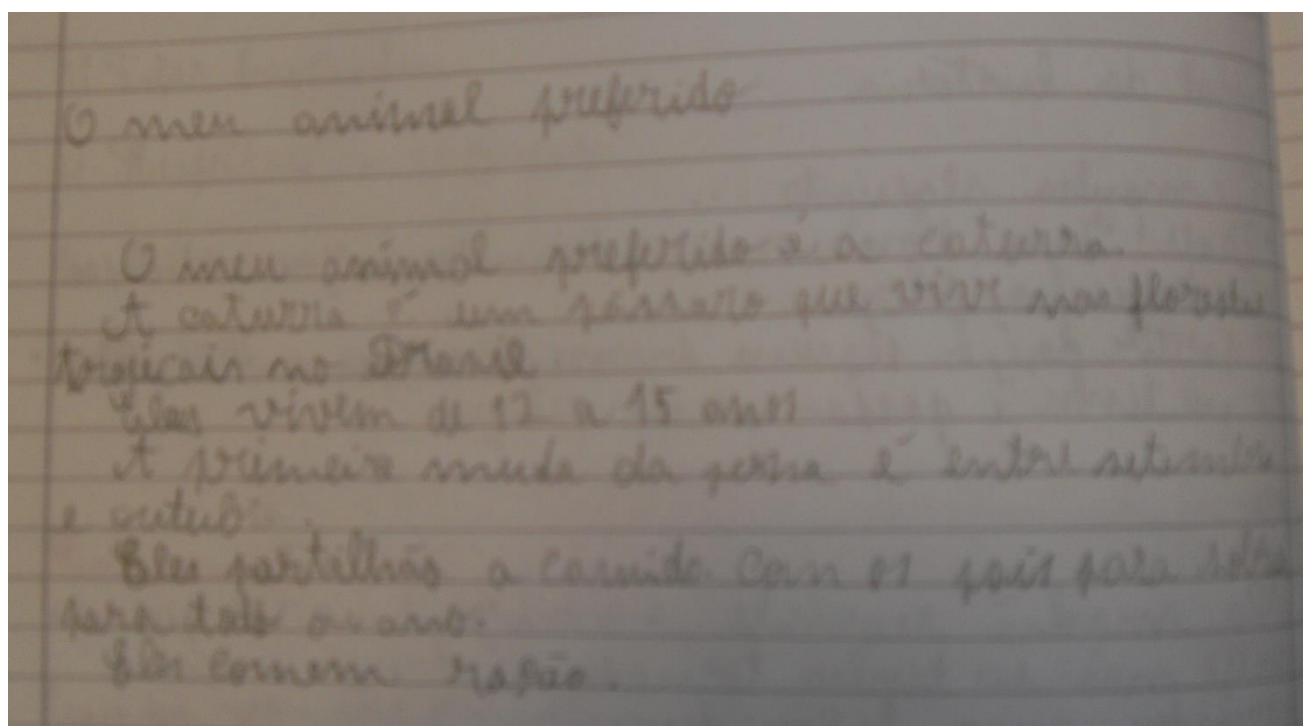 O meu animal preferido
O meu animal preferido é a caturra.
A caturra é um pássaro que vive nas
tropicais no Brasil
Eles vivem de 12 a 15 anos
A primeira muda da pena é entre setembro
e outub
Eles partilhão a comida com os pais para
para todo o ano.
Eles comem ração.